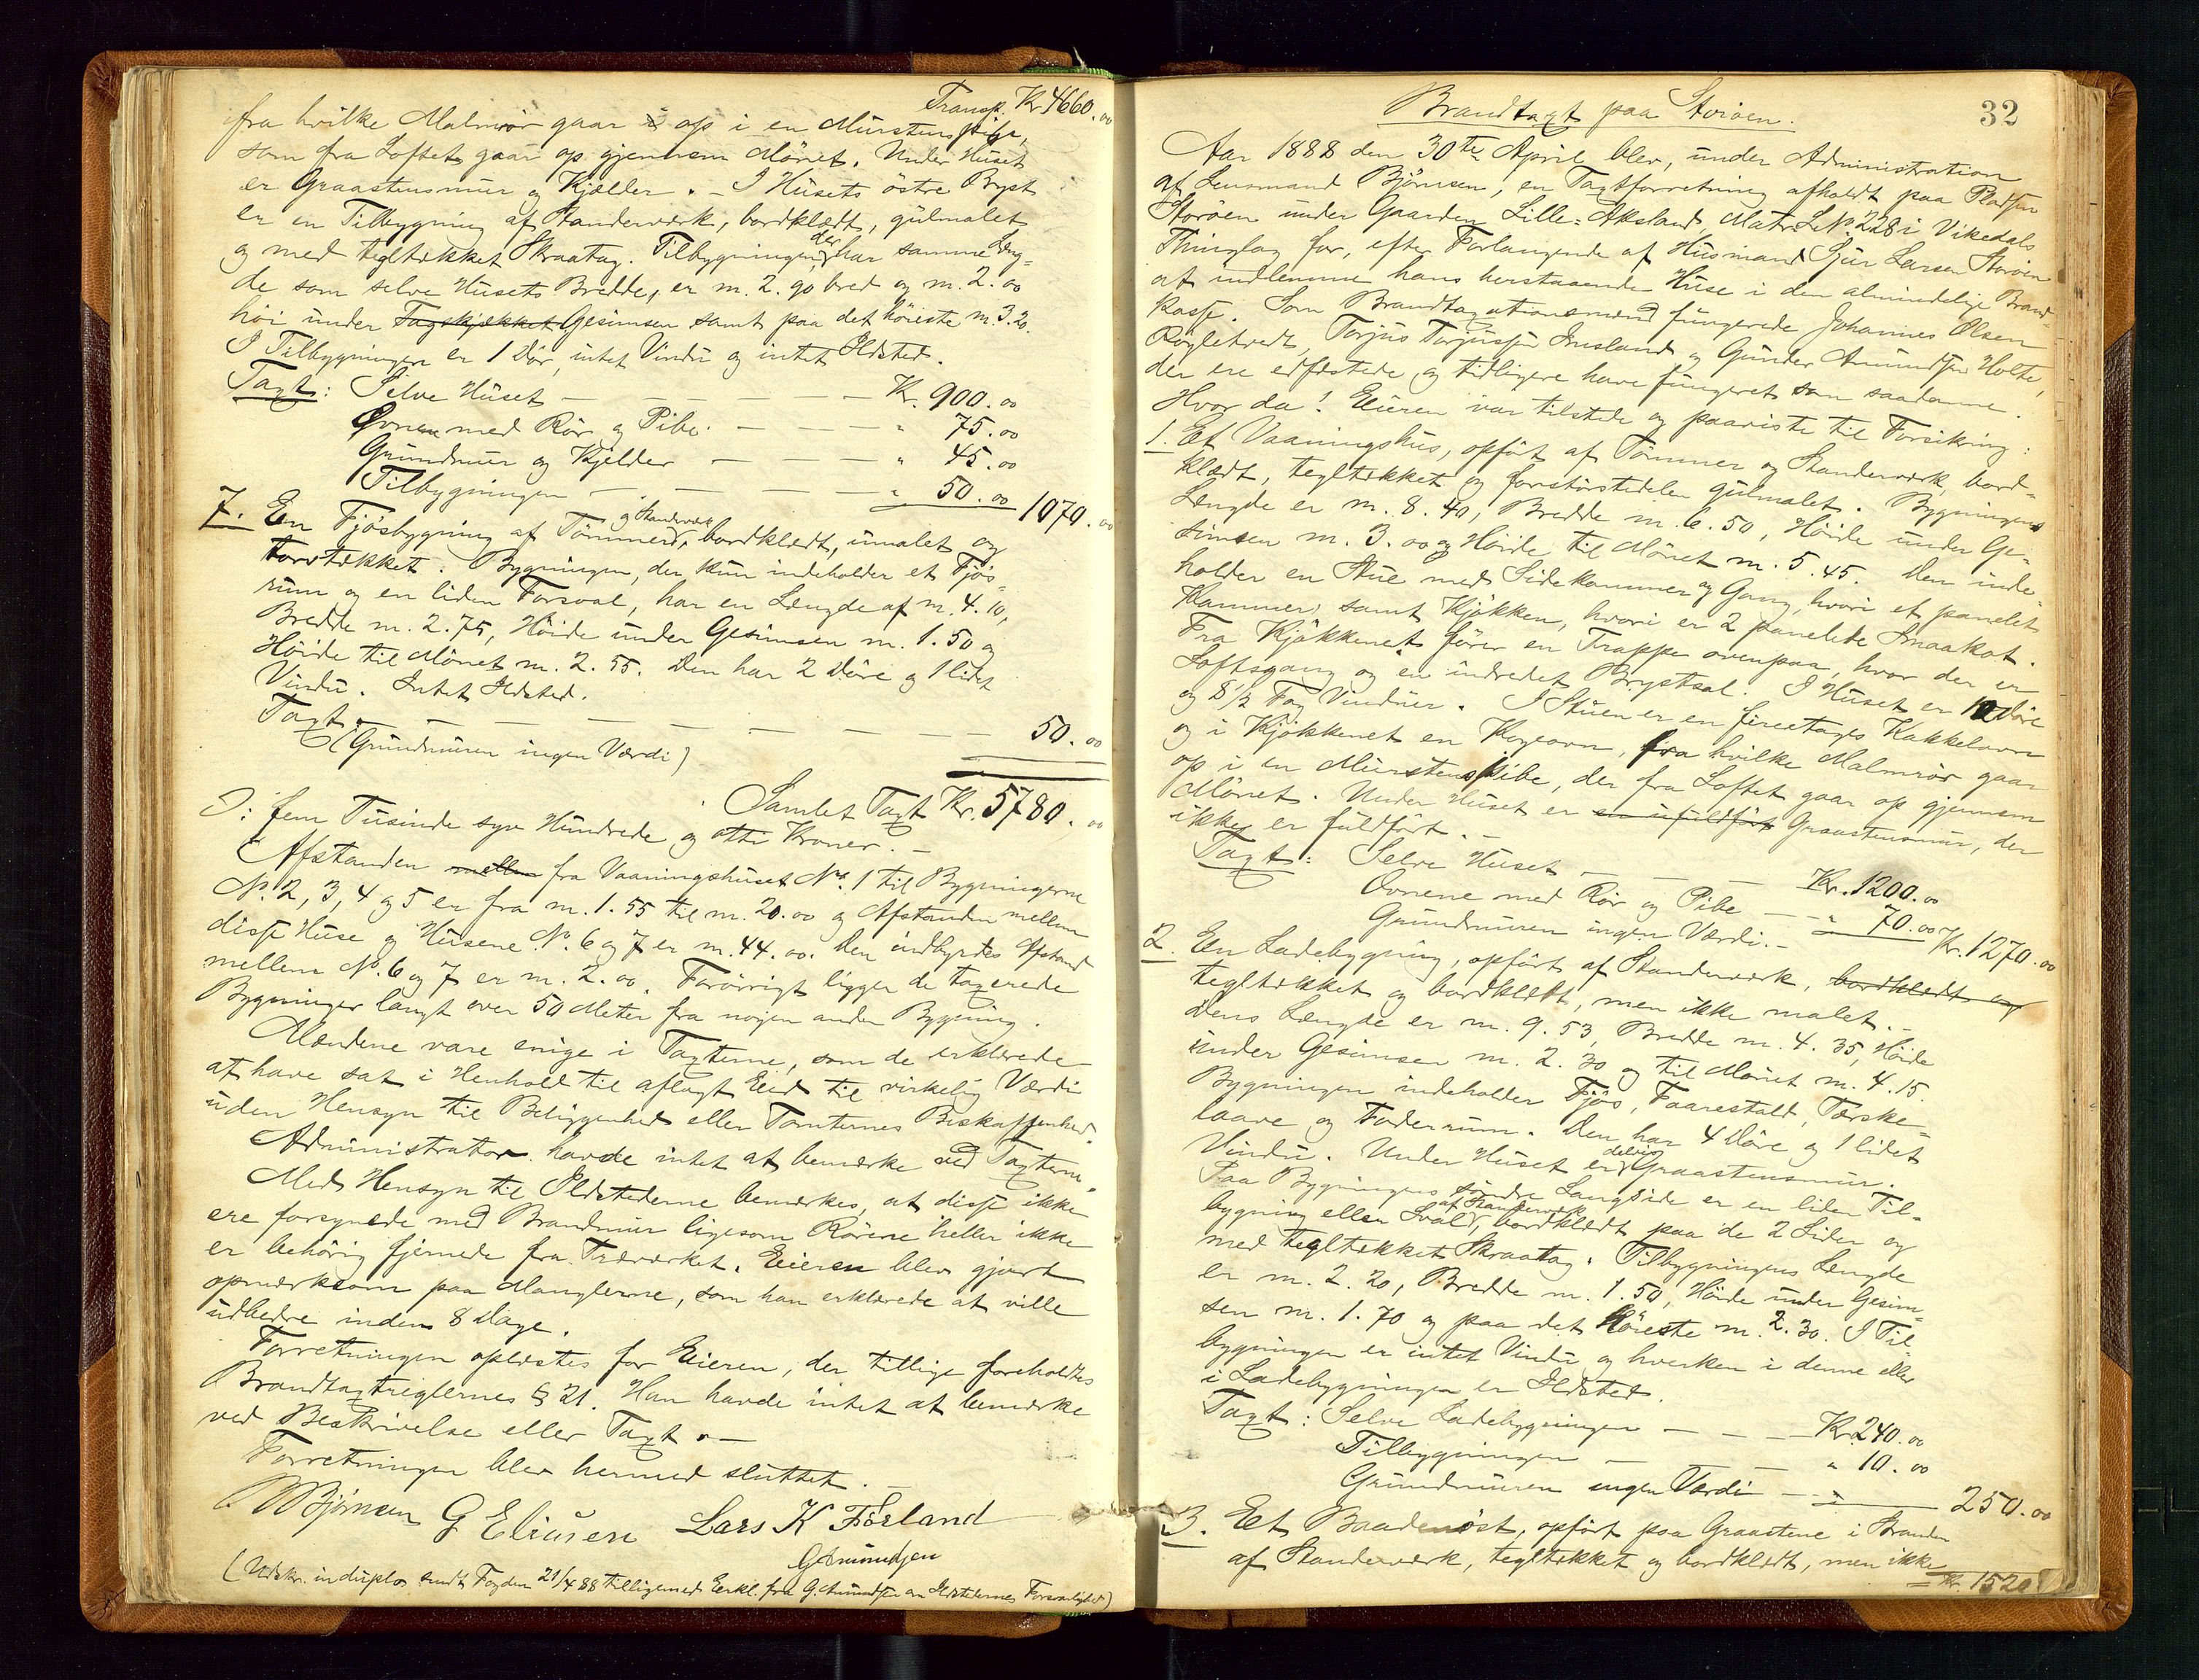 Transp. Kr 4660.00
fra hvilke Malmrör gaar op i en Murstenspibe,
som fra Loftet gaar op gjennem Mönet. Under Huset
er Graastensmur og Kjælder. – I Husets östre Bryst
er en Tilbygning af Standerværk, bordklædt, gulmalet
og med tegltækket Skraatag. Tilbygningen, der har samme Læng-
de som selve Husets Bredde, er m. 2.90 bred og m. 2.00
höi under Gesimsen samt paa det höieste m. 3.20.
I Tilbygningen er 1 Dör, intet Vindu og intet Ildsted.
Taxt: Selve Huset — Kr. 900.00
Ovnen med Rör og Pibe — " 75.00
Grundmur og Kjelder — " 45.00
Tilbygningen — " 50.00 1070.00
7. Een Fjösbygning af Tömmer og Standerværk, bordklædt, umalet og
torvtækket. Bygningen, der kun indeholder et Fjös-
rum og en liden Forsval, har en Længde af m. 4.10,
Bredde m. 2.75, Höide under Gesimsen m. 1.50 og
Höide til Mönet m. 2.55. Den har 2 Döre og 1 lidet
Vindu. Intet Ildsted.
Taxt. — 50.00
(Grundmuren ingen Værdi)
Samlet Taxt Kr. 5780.00
ɔ: fem Tusinde syv Hundrede og otti Kroner. –
Afstanden mellem fra Vaaningshuset No. 1 til Bygningerne
No. 2, 3, 4 og 5 er fra m. 1.55 til m. 20.00 og Afstanden mellem
disse Huse og Husene No. 6 og 7 er m. 44.00. Den indbyrdes Afstand
mellem No. 6 og 7 er m. 2.00. Forövrigt ligger de taxerede
Bygninger langt over 50 Meter fra nogen anden Bygning.
Mændene vare enige i Taxterne, som de erklærede
at have sat i Henhold til aflagt Eed til virkelig Værdi
uden Hensyn til Beliggenhed eller Tomternes Beskaffenhed.
Administrator havde intet at bemærke ved Taxterne.
Med Hensyn til Ildstederne bemærkes, at disse ikke
ere forsynede med Brandmur ligesom Rörene heller ikke
er behörig fjernede fra Træværket. Eieren blev gjort
opmærksom paa Manglerne, som han erklærede at ville
udbedre inden 8 Dage.
Forretningen oplæstes for Eieren, der tillige foreholdtes
Brandtaxtreglernes § 21. Han havde intet at bemærke
ved Beskrivelse eller Taxt. –
Forretningen blev hermed sluttet. –
Bjørnsen G Eliasen Lars K Førland
G Amundsen
(Udskr. in duplo sendt Fogden 21/4 88 tilligemed Eerkl. fra G. Amundsen om Ildstedernes Forsvarlighed)
32
Brandtaxt paa Storöen.
Aar 1888 den 30te April blev, under Administration
af Lensmand Björnsen, en Taxtforretning afholdt paa Pladsen
Storöen under Gaarden Lille-Aksland, Matr. L. No. 228 i Vikedals
Thinglag for, efter Forlangende af Husmand Sjur Larsen Storöen
at indlemme hans herstaaende Huse i den almindelige Brand-
kasse. Som Brandtaxationsmænd fungerede Johannes Olsen
Rögletvedt, Torjus Torjussen Imsland og Gunder Amundsen Holte,
der ere edfæstede og tidligere have fungeret som saadanne.
Hvor da! Eieren var tilstede og paaviste til Forsikring:
1. Et Vaaningshus, opfört af Tömmer og Standerværk, bord-
klædt, tegltækket og forstörstedelen gulmalet. Bygningens
Længde er m. 8.40, Bredde m. 6.50, Höide under Ge-
simsen m. 3.00 og Höide til Mönet m. 5.45. Den inde-
holder en Stue med Sidekammer og Gang, hvori et panelet
Kammer, samt Kjökken, hvori er 2 panelede Smaakot.
Fra Kjökkenet förer en Trappe ovenpaa, hvor der er
Loftsgang og en indredet Brystsal. I Huset er 10 Döre
og 8 1/2 Fag Vinduer. I Stuen er en fireetages Kakkelovn
og i Kjökkenet en Kogeovn, fra hvilke Malmrör gaar
op i en Murstenspibe, der fra Loftet gaar op gjennem
Mönet. Under Huset er en ufuldfört Graastensmur, der
ikke er fuldfört. –
Taxt: Selve Huset — Kr. 1200.00
Ovnene med Rör og Pibe — " 70.00 Kr. 1270.00
Grundmuren ingen Værdi. –
2. Een Ladebygning, opfört af Standerværk, bordklædt og
tegltækket og bordklædt, men ikke malet. –
Dens Længde er m. 9.53, Bredde m. 4.35, Höide
under Gesimsen m. 2.30 og til Mönet m. 4.15.
Bygningen indeholder Fjös, Faarestald, Tærske-
laave og Foderrum. Den har 4 Döre og 1 lidet
Vindu. Under Huset er delvis Graastensmur.
Paa Bygningens söndre Langside er en liden Til-
bygning eller Sval af Standerværk, bordklædt paa de 2 Sider og
med tegltækket Skraatag. Tilbygningens Længde
er m. 2.20, Bredde m. 1.50, Höide under Gesim-
sen m. 1.70 og paa det Höieste m. 2.30. I Til-
bygningen er intet Vindu og hverken i denne eller
i Ladebygningen er Ildsted.
Taxt: Selve Ladebygningen — Kr. 240.00
Tilbygningen — " 10.00
Grundmuren ingen Værdi — " 250.00
3. Eet Baadenöst, opfört paa Graastene i Stranden
af Standerværk, tegltækket og bordklædt, men ikke
Kr. 1520